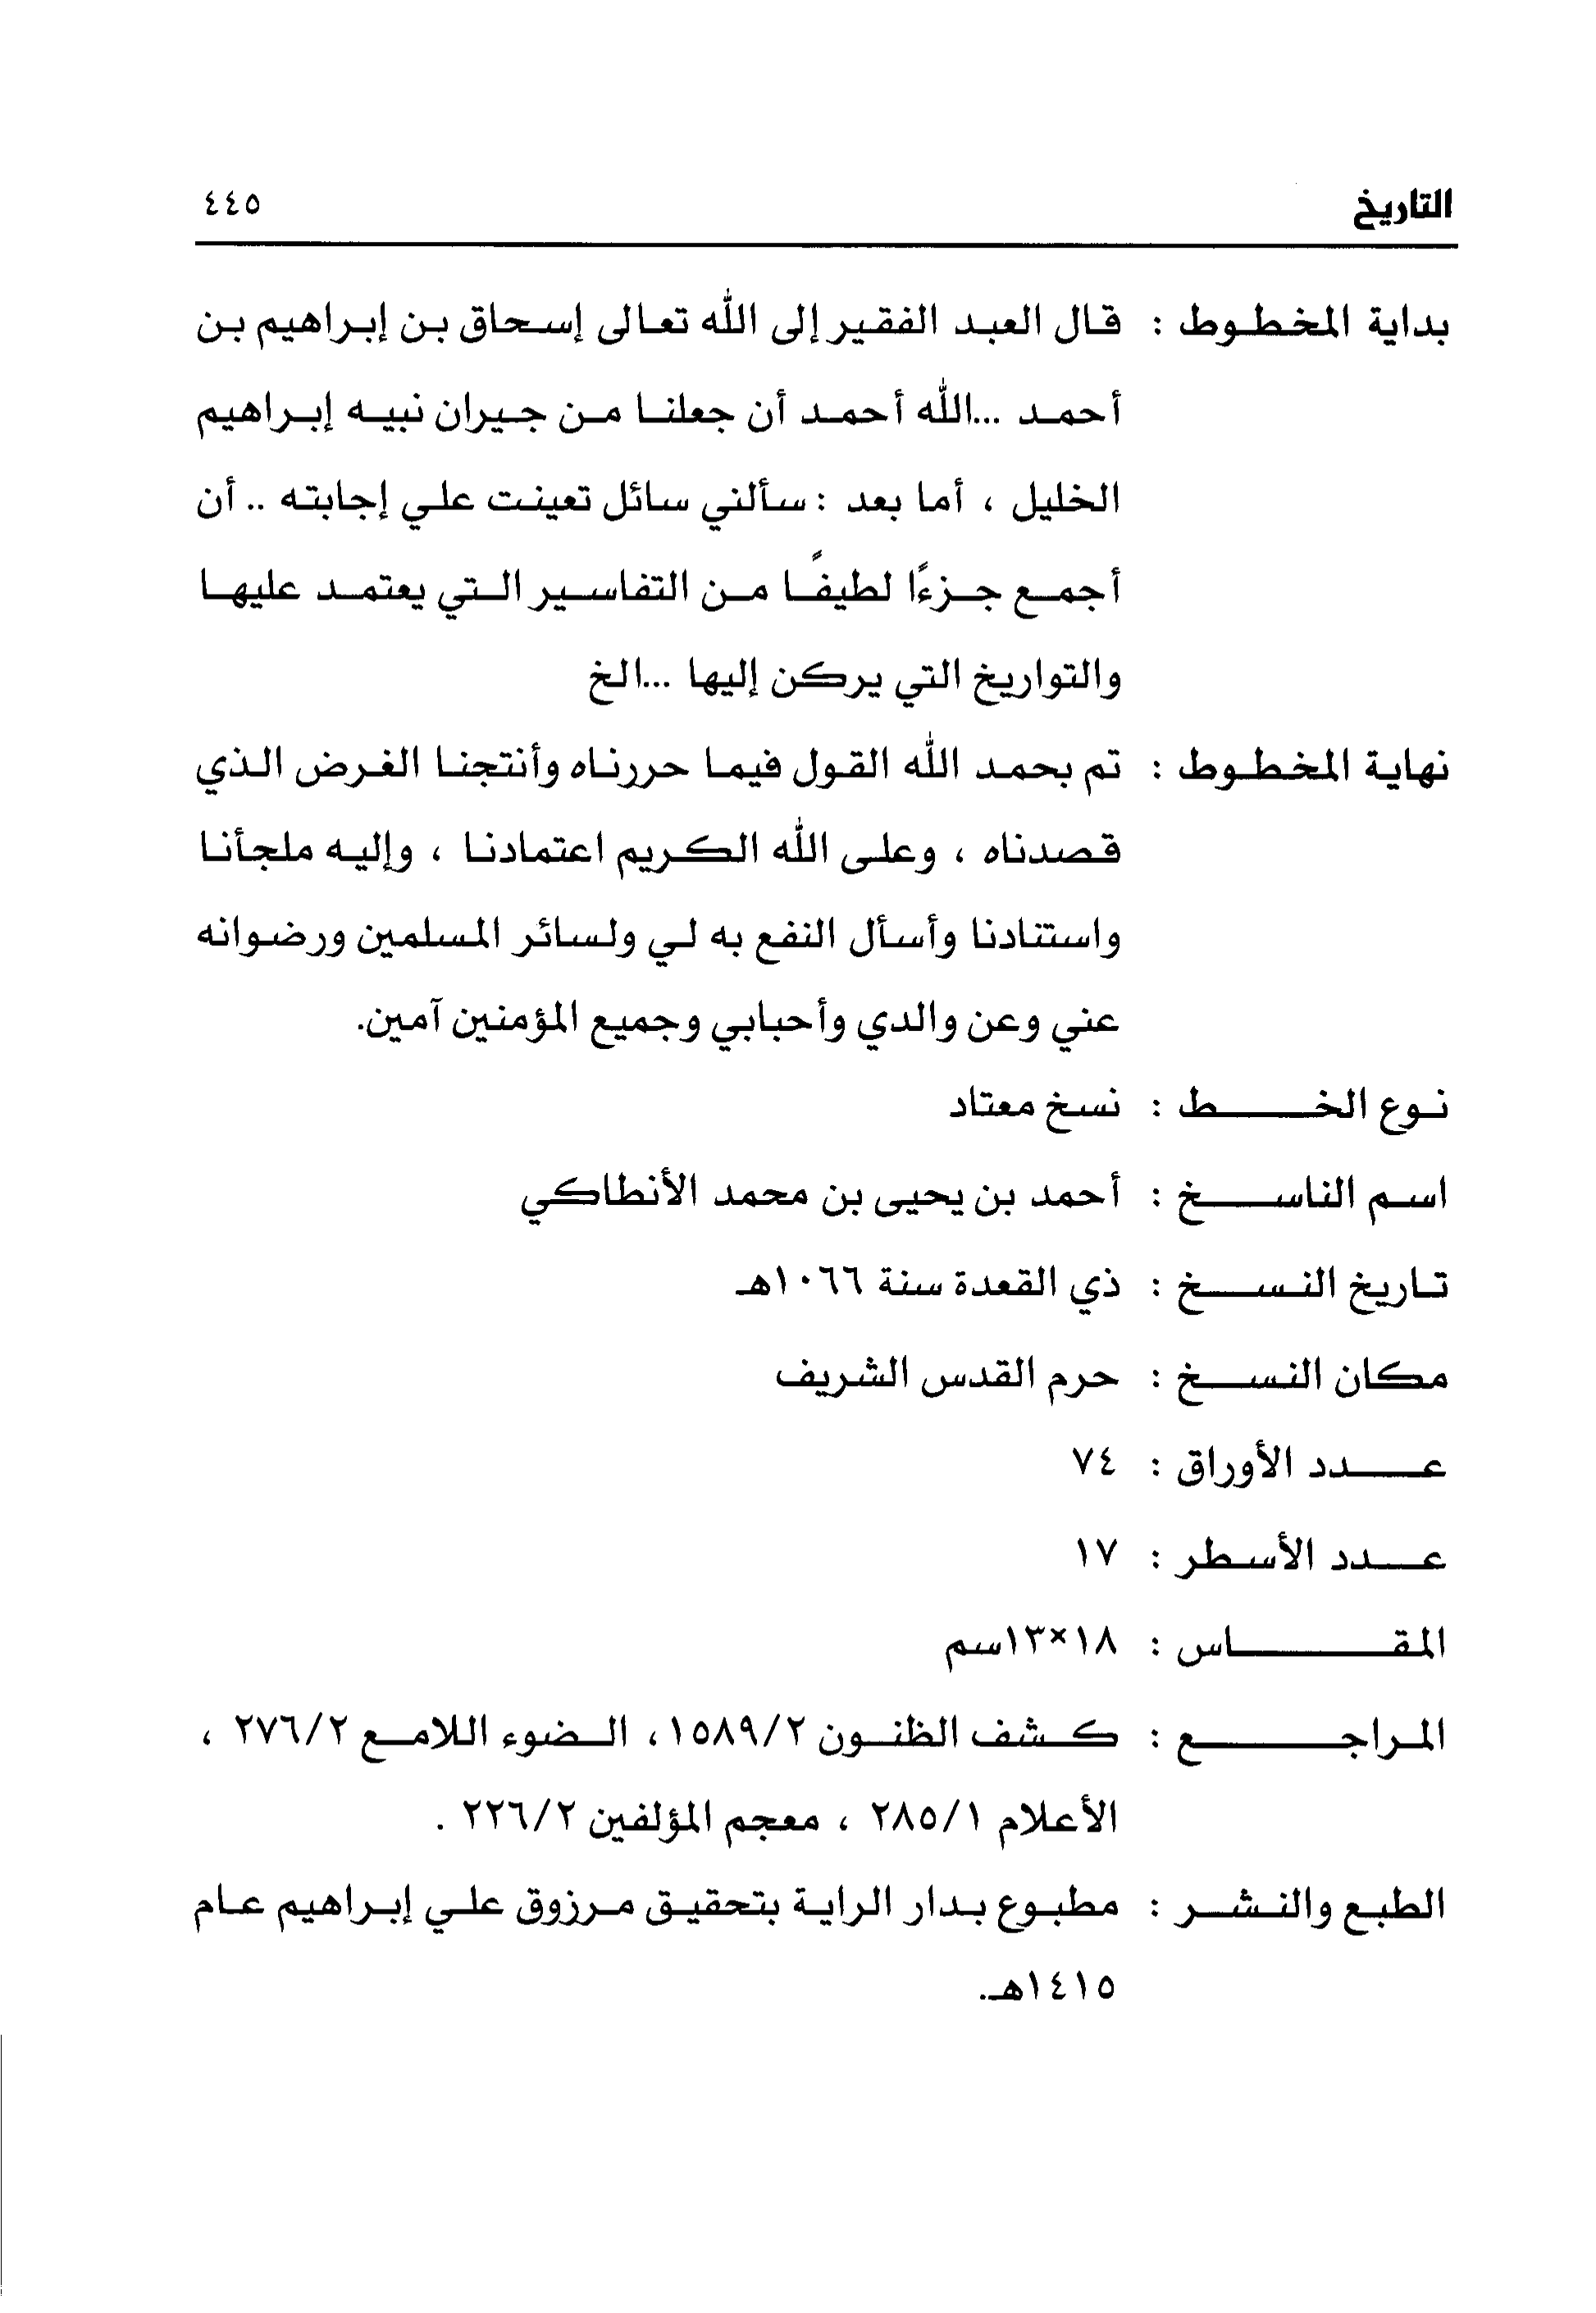 التاريخ ٤٤٥
بداية المخطوط : قال العبد الفقير إلى الله تعالى إسحاق بن إبراهيم بن
أحمد ...الله أحمد أن جعلنا من جيران نبيه إبراهيم
الخليل ، أما بعد : سألني سائل تعينت علي إجابته .. أن
أجمع جزءًا لطيفًا من التفاسير التي يعتمد عليها
والتواريخ التي يركن إليها ...الخ
نهاية المخطوط : تم بحمد الله القول فيما حررناه وأنتجنا الغرض الذي
قصدناه ، وعلى الله الكريم اعتمادنا ، وإليه ملجأنا
واستنادنا وأسأل النفع به لي ولسائر المسلمين ورضوانه
عني وعن والدي وأحبابي وجميع المؤمنين آمين.
نوع الخط : نسخ معتاد
اسم الناسخ : أحمد بن يحيى بن محمد الأنطاكي
تاريخ النسخ : ذي القعدة سنة ١٠٦٦هـ
مكان النسخ : حرم القدس الشريف
عدد الأوراق : ٧٤
عدد الأسطر : ١٧
المقاس : ١٨×١٣سم
المراجع : كشف الظنون ١٥٨٩/٢، الضوء اللامع ٢٧٦/٢ ،
الأعلام ٢٨٥/١ ، معجم المؤلفين ٢٢٦/٢ .
الطبع والنشر : مطبوع بدار الراية بتحقيق مرزوق علي إبراهيم عام
١٤١٥هـ.